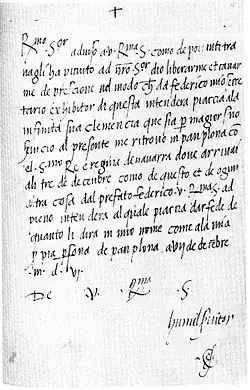 Rmo Sor
adviso a v. Rma S. como de poi tante tra
uagli ha piaciuto ad nro Sor dio liberarme et cauar
me de presone nel modo che da federico mio secre
tario exhibitor di questa intendera piaccia ala
infinita sua clemencia che sia per maggior suo
seruicio al presente me ritrouo in panplona co
el Smo Re e regina de nauarra doue arriuai
ali tre de decenbre como de questo et de ogni
altra cosa dal prefato federico v. Rma S. ad
pieno intendera al quale piaccia dar fede de
quanto li dira in mio nome como ala mia
persona de panplona a vii de decebre
m. d. vi.
De V. Rma S.